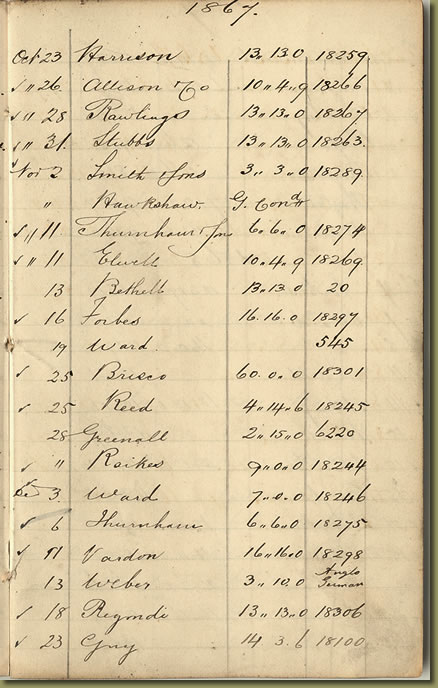 1867.
Oct 23 Harrison 13,, 13.0 18259.
✓ ,, 26 Allison & Co 10,, 4,, 9 18266
✓ ,, 28 Rawlings 13,, 13,, 0 18267
✓ ,, 31. Stubbs 13,, 13,, 0 18263.
Nov 2 Smith & Sons 3,, 3,, 0 18289
,, Hawkshaw. G. Cond
✓ ,, 11 Thurnham & Sons 6,, 6,, 0 18274
✓ ,, 11 Elwell 10,, 4,, 9 18269
13 Bethell 13,, 13. 0 20
✓ 16 Forbes 16. 16. 0 18297
19 Ward 545
✓ 25 Brisco 60. 0. 0 18301
✓ 25 Reed 4,, 14,, 6 18245
28 Greenall 2,, 15,, 0 6220
✓ ,, Raikes 9,, 0,, 0 18244
Dec 3. Ward 7,, 0. 0 18246
✓ 6 Thurnham 6,, 6,, 0 18275
✓ 11 Vardon 16,, 16,, 0 18298
13 Weber 3,, 10. 0 Anglo German
✓ 18 Regondi 13,, 13,, 0 18306
✓ 23 Guy 14 3. 6 18100